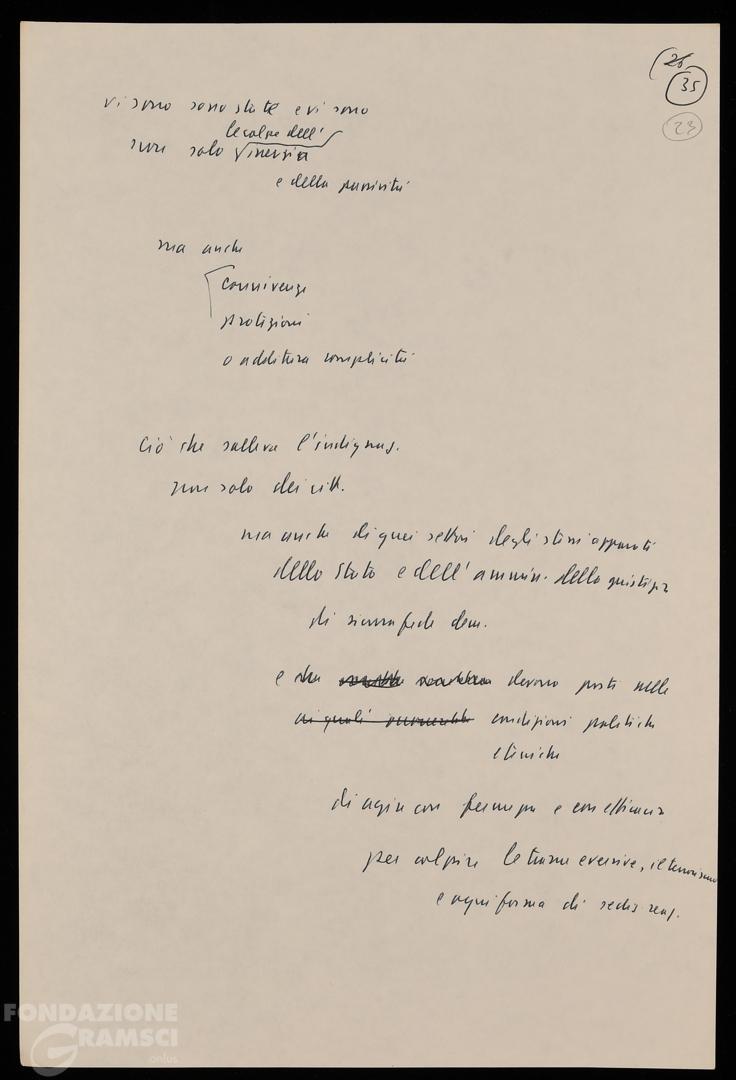 26
35
23
vi sono sono state e vi sono
le colpe dell'
non solo inerzia
e della passività
ma anche
connivenze
protezioni
o addittura complicità
Ciò che solleva l'indignaz.
non solo dei citt.
ma anche di quei settori degli stessi apparati
dello Stato e dell'ammin. della giustizia
di sicura fede dem.
e che devono posti nelle
ai quali condizioni politiche
e tecniche
di agire con fermezza e con efficacia
per colpire le trame eversive, il terrorismo
e ogni forma di sediz reaz.
FONDAZIONE
GRAMSCI
onlus